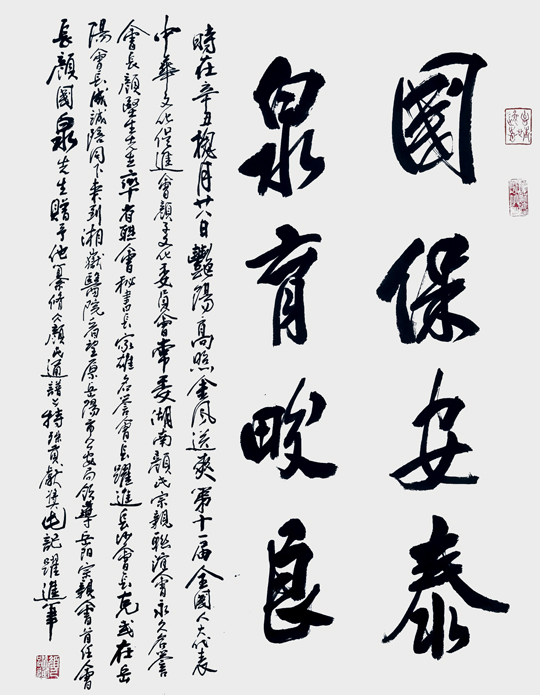 國保安泰
泉育畯良
時在辛丑槐月廿八日艷陽高照金風送爽第十一届全國人大代表
中華文化促進會顏子文化委員會常委湖南顏氏宗親聯誼會永久名譽
會長顏堅生先生率省聯會秘書長家雄名譽會長躍進長沙會長克武在岳
陽會長成誠陪同下来到湘嶽醫院看望原岳陽市公安局領導岳阳宗親會首任會
長顏國泉先生贈予他纂修顏氏通譜之特殊貢獻獎也記躍進筆